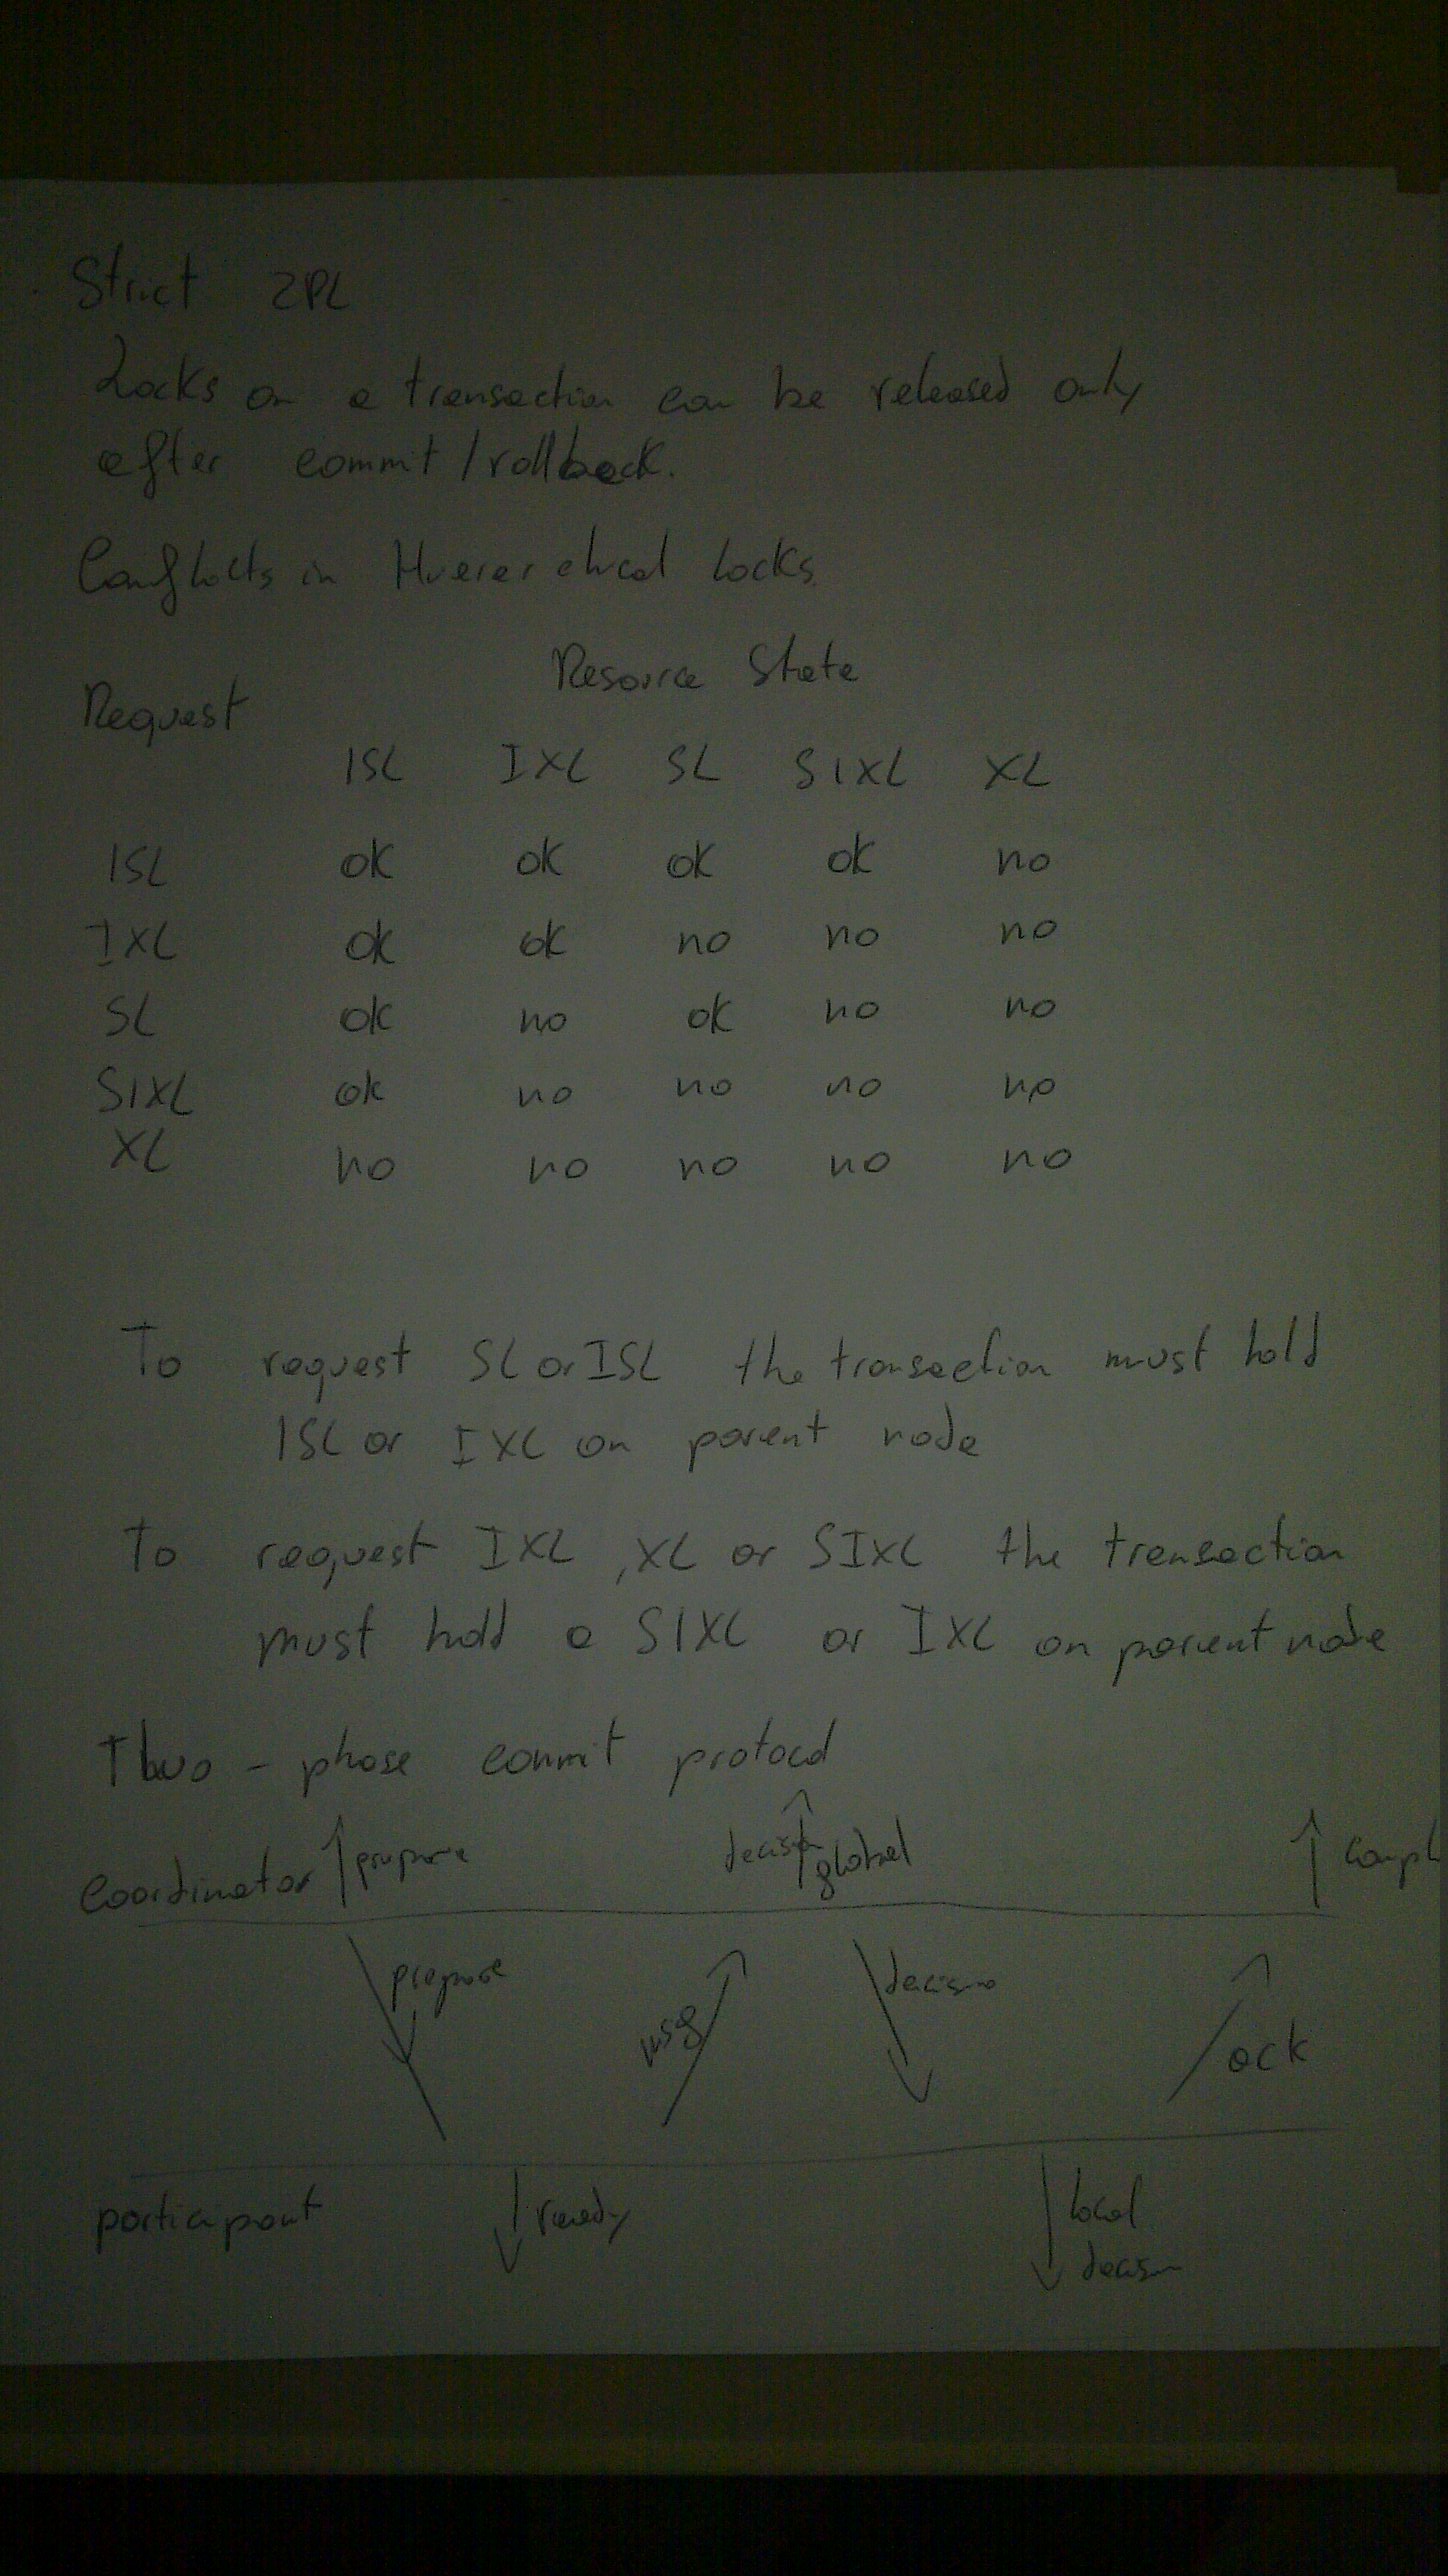 Strict 2PL
Locks on a transaction can be released only
after commit / rollback.
Conflicts in Hierarchical locks.
Resource State
Request
ISL IXL SL SIXL XL
ISL ok ok ok ok no
IXL ok ok no no no
SL ok no ok no no
SIXL ok no no no no
XL no no no no no
To request SL or ISL the transaction must hold
ISL or IXL on parent node
To request IXL, XL or SIXL the transaction
must hold a SIXL or IXL on parent node
Two - phase commit protocol
Coordinator prepare decision global compl
prepare msg decision ack
participant ready local
decision